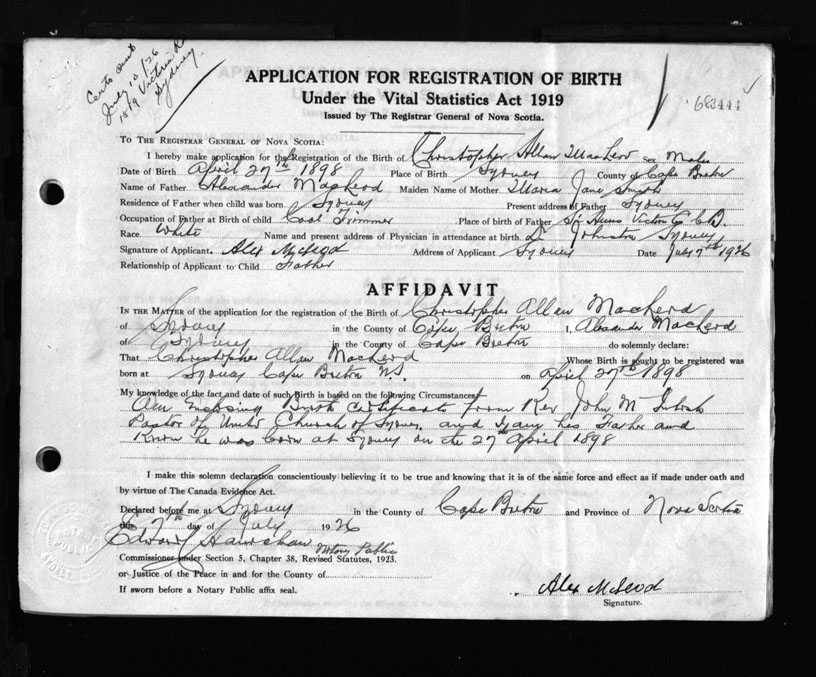 Certs sent
July 10/26
Sydney.
APPLICATION FOR REGISTRATION OF BIRTH
Under the Vital Statistics Act 1919
Issued by The Registrar General of Nova Scotia.
683444
To The Registrar General of Nova Scotia:
I hereby make application for the Registration of the Birth of Christopher Allan MacLeod Sex Male
Date of Birth April 27th 1898 Place of Birth Sydney County of Cape Breton
Name of Father Alexander MacLeod Maiden Name of Mother Maria Jane Smith
Residence of Father when child was born Sydney Present address of Father Sydney
Occupation of Father at Birth of child Coal Trimmer Place of Birth of Father Victoria Co C.B.
Race White Name and present address of Physician in attendance at birth Dr Johnston Sydney
Signature of Applicant. Alex McLeod Address of Applicant Sydney Date July 7th 1926
Relationship of Applicant to Child Father
AFFIDAVIT
In the Matter of the application for the registration of the Birth of Christopher Allan MacLeod
of Sydney in the County of Cape Breton I, Alexander MacLeod
of Sydney in the County of Cape Breton do solemnly declare:
That Christopher Allan MacLeod Whose Birth is sought to be registered was
born at Sydney Cape Breton N.S. on April 27th 1898
My knowledge of the fact and date of such Birth is based on the following Circumstances
Am Enclosing Birth Certificate from Rev John M
Pastor of United Church of Sydney and I am his Father and
Know he was born at Sydney on the 27th April 1898
I make this solemn declaration conscientiously believing it to be true and knowing that it is of the same force and effect as if made under oath and
by virtue of The Canada Evidence Act.
Declared before me at Sydney in the County of Cape Breton and Province of Nova Scotia
this 7th day of July 1926
Edward
Notary Public
Commissioner under Section 5, Chapter 38, Revised Statutes, 1923.
or Justice of the Peace in and for the County of
If sworn before a Notary Public affix seal.
Alex McLeod
Signature.